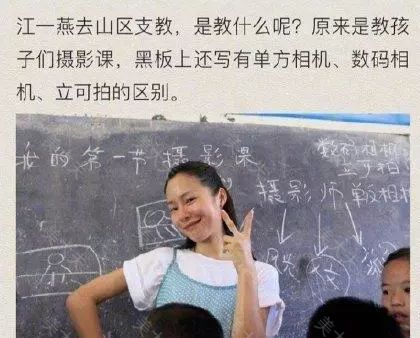 江一燕去山区支教，是教什么呢？原来是教孩
子们摄影课，黑板上还写有单方相机、数码相
机、立可拍的区别。
我的第一节摄影课
数码相机
立可拍
摄影师 单板相